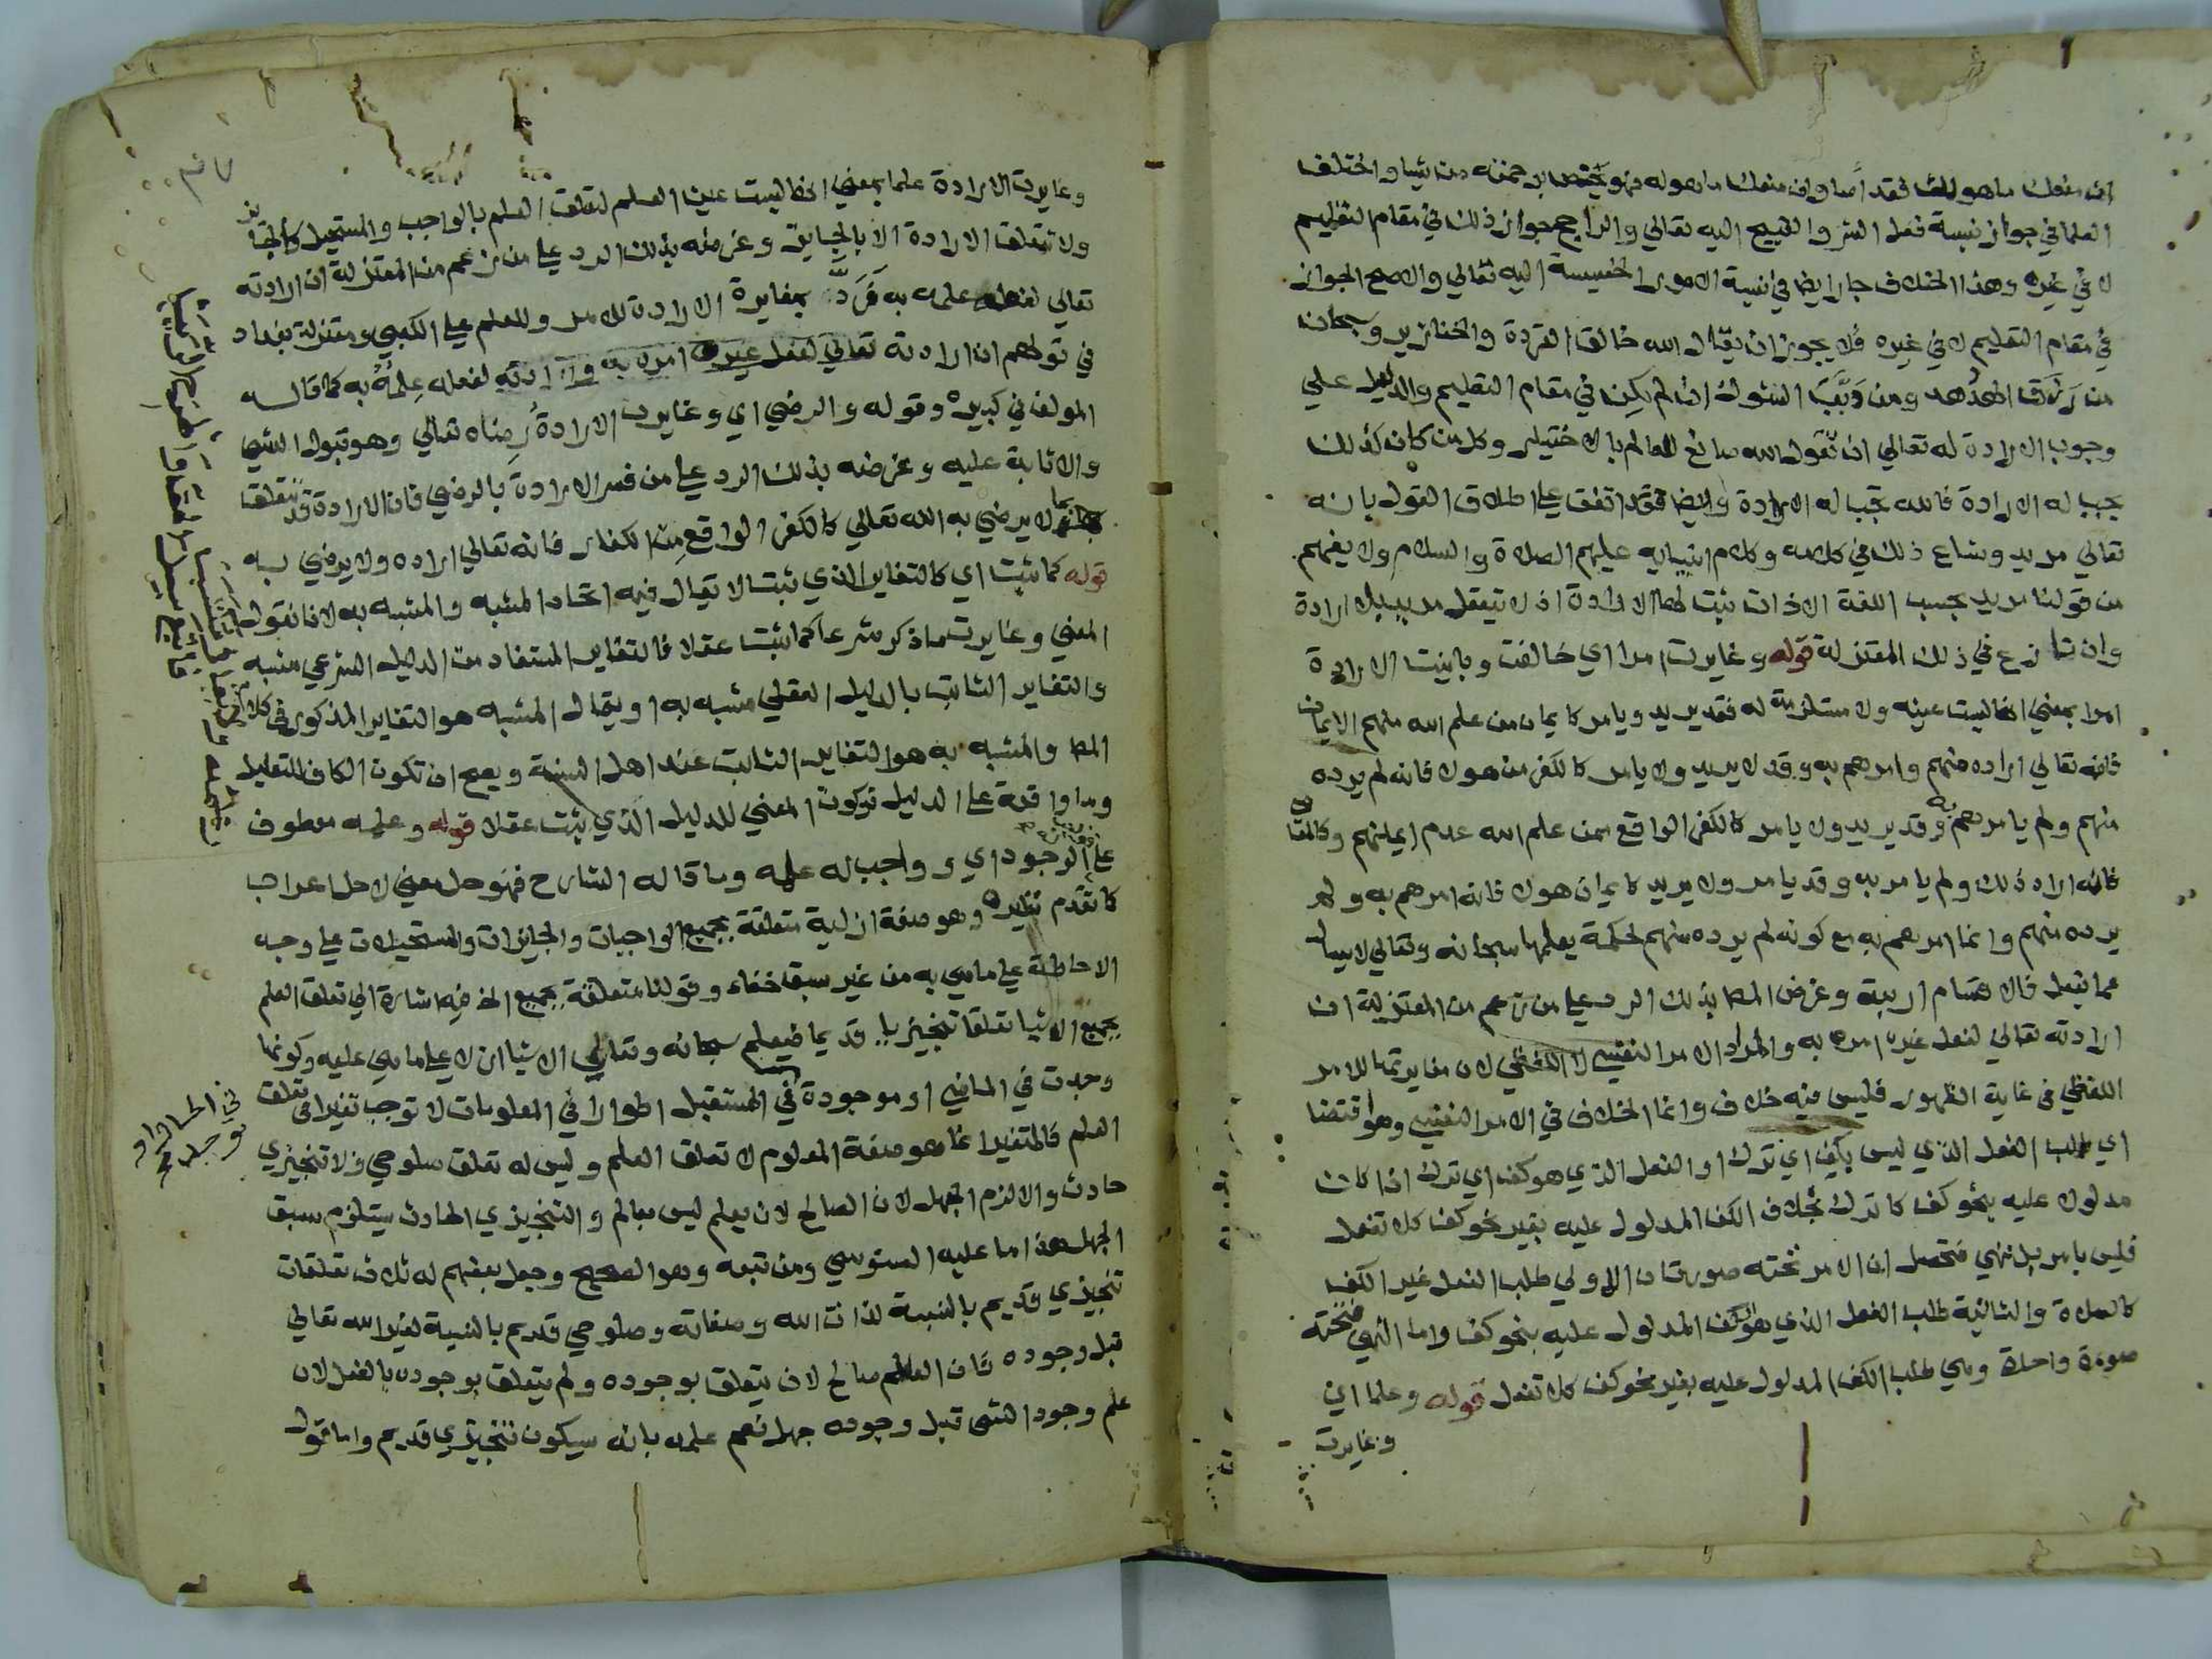 ان منعك ما هو لك فقد أسا وان منعك ما هو له فهو يختص برحمته من يشا واختلف
العلما في جواز نسبة فعل الشر والقبيح اليه تعالي والراجح جواز ذلك في مقام التعليم
لا في غيره وهذا الخلاف جار ايضا في نسبة الامور الخسيسة اليه تعالي والاصح الجواز
في مقام التعليم لا في غيره فلا يجوز ان يقال الله خالق القردة والخنازير وسبحان
من رزق الهدهد ومن دبب الشوك ان لم يكن في مقام التعليم والدليل علي
وجوب الارادة له تعالي ان تقول الله صانع للعالم بالاختيار وكل من كان كذلك
يجب له الارادة فالله تجب له الارادة وايضا فقد اتفق علي اطلاق القول بانه
تعالي مريد وشاع ذلك في كلامه وكلام انبيايه عليهم الصلاة والسلام ولا يفهم
من قولنا مريد بحسب اللغة الا ذات ثبت لها الارادة اذ لا يتعقل مريد بلا ارادة
وان تنازع في ذلك المعتزلة قوله وغايرت امرا اي خالفت وباينت الارادة
امرا بمعني انها ليست عينه ولا مستلزمة له فقد يريد ويامر كايمان من علم الله منهم الايمان
فانه تعالي اراده منهم وامرهم به وقد لا يريد ولا يامر كالكفر من هولا فانه لم يرده
منهم ولم يامرهم به وقد يريد ولا يامر كالكفر الواقع ممن علم الله عدم ايمانهم وكالمعاصي
فانه اراد ذلك ولم يامر به وقد يامر ولا يريد كايمان هولا فانه امرهم به ولم
يرده منهم وانما امرهم به مع كونه لم يرده منهم لحكمة يعلمها سبحانه وتعالي لا يسال
عما يفعل فالاقسام اربعة وغرض المص بذلك الرد علي من زعم من المعتزلة ان
ارادته تعالي لفعل غيره امره به والمراد الامر النفسي لا اللفظي لان مغايرتها للامر
اللفظي في غاية الظهور فليس فيه خلاف وانما الخلاف في الامر النفسي وهو اقتضا
اي طلب الفعل الذي ليس بكف اي ترك او الفعل الذي هو كف اي ترك اذا كان
مدلولا عليه بنحو كف كاترك بخلاف الكف المدلول عليه بغير نحو كف كلا تفعل
فليس بامر بل نهي فتحصل ان الامر تحته صورتان الاولي طلب الفعل غير الكف
كالصلاة والثانية طلب الفعل الذي هو الكف المدلول عليه بنحو كف واما النهي فتحته
صورة واحدة وهي طلب الكف المدلول عليه بغير نحو كف كلا تفعل قوله وعلما اي
وغايرت
وغايرت الارادة علما بمعني انها ليست عين العلم لتعلق العلم بالواجب والمستحيل كالجايز
ولا تتعلق الارادة الا بالجايز وغرضه بذلك الرد علي من زعم من المعتزلة ان ارادته
تعالي لفعله علمه به فرد بمغايرة الارادة للامر وللعلم علي الكعبي ومعتزلة بغداد
في قولهم ان ارادته تعالي لفعل غيره امره به وارادته لفعله علمه به كما قاله
المولف في كبيره وقوله والرضي اي وغايرت الارادة رضاه تعالي وهو قبول الشي
والاثابة عليه وغرضه بذلك الرد علي من فسر الارادة بالرضي فان الارادة قد تتعلق
بما لا يرضي به الله تعالي كالكفر الواقع من الكفار فانه تعالي اراده ولا يرضي به
قوله كما ثبت اي كالتغاير الذي ثبت لا يقال فيه اتحاد المشبه والمشبه به لانا نقول
المعني وغايرت ماذكر شرعا كما ثبت عقلا فالتغاير المستفاد من الدليل الشرعي مشبه
والتغاير الثابت بالدليل العقلي مشبه به او يقال المشبه هو التغاير المذكور في كلام
المص والمشبه به هو التغاير الثابت عند اهل السنة ويصح ان تكون الكاف للتعليل
وما واقعة علي الدليل فيكون المعني للدليل الذي ثبت عقلا قوله وعلمه معطوف
علي الوجود اي وواجب له علمه وما قاله الشارح فهو حل معني لا حل اعراب
كما تقدم نظيره وهو صفة ازلية متعلقة بجميع الواجبات والجايزات والمستحيلات علي وجه
الاحاطة علي ماهي به من غير سبق خفاء وقولنا متعلقة بجميع الخ فيه اشارة الي تعلق العلم
بجميع الاشيا تعلقا تنجيزيا قديما فيعلم سبحانه وتعالي الاشيا ازلا علي ماهي عليه وكونها
وجدت في الماضي او موجودة في المستقبل اطوارا في المعلومات لا توجب تغيرا في تعلق
العلم فالمتغير انما هو صفة المعلوم لا تعلق العلم وليس له تعلق صلوحي ولا تنجيزي
حادث والا لزم الجهل لان الصالح لان يعلم ليس بعالم والتنجيزي الحادث يستلزم سبق
الجهل هذا ما عليه السنوسي ومن تبعه وهو الصحيح وجعل بعضهم له ثلاث تعلقات
تنجيزي قديم بالنسبة لذات الله وصفاته وصلوحي قديم بالنسبة لغير الله تعالي
قبل وجوده فان العلم صالح لان يتعلق بوجوده ولم يتعلق بوجوده بالفعل لان
علم وجود الشي قبل وجوده جهل نعم علمه بانه سيكون تنجيزي قديم واما قول
في الحال او
توجد